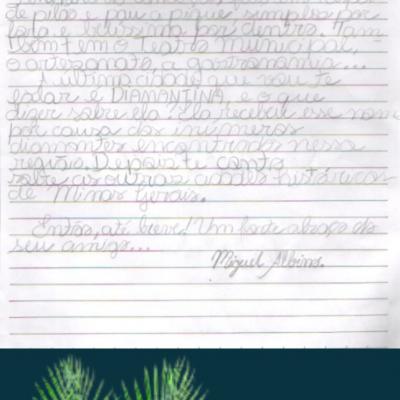 de pilão e pau a pique simples por
fora e belíssima por dentro. Tam
bém tem o Teatro Municipal,
o artezanato, a gastronomia...
A última cidade que vou te
falar é DIAMANTINA, e o que
dizer sobre ela? Ela recebeu esse nome
por causa dos inúmeros
diamantes encontrados nessa
região. Depois te conto
sobre as outras cidades históricas
de Minas Gerais.
Então, até breve! Um forte abraço do
seu amigo...
Miguel